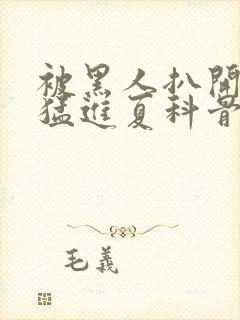 被黑人扒開
猛進夏科骨
毛義